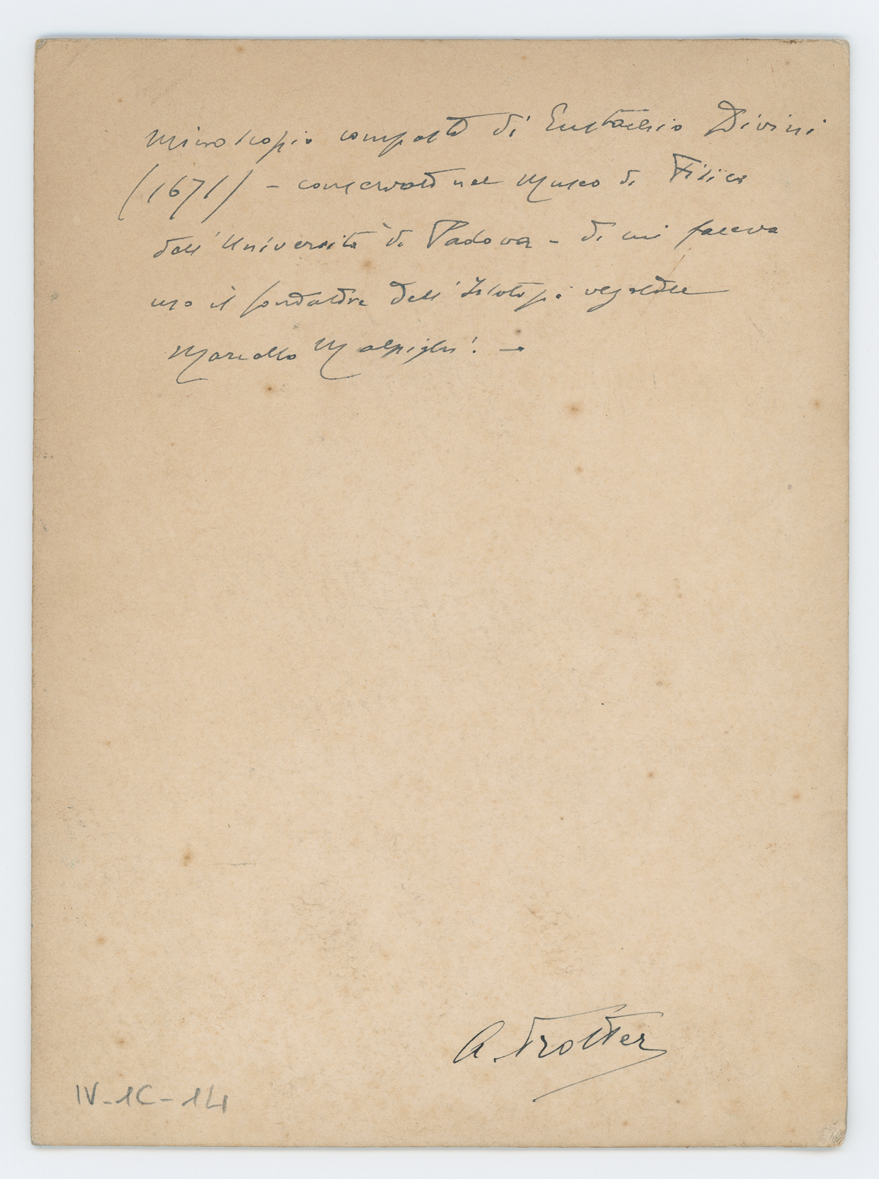 Microscopio composto di Eustachio Divini
(1671) - conservato nel Museo di Fisica
dell'Università di Padova - di cui faceva
uso il fondatore dell'Istologia vegetale
Marcello Malpighi. -
A. Trotter
IV-1C-14